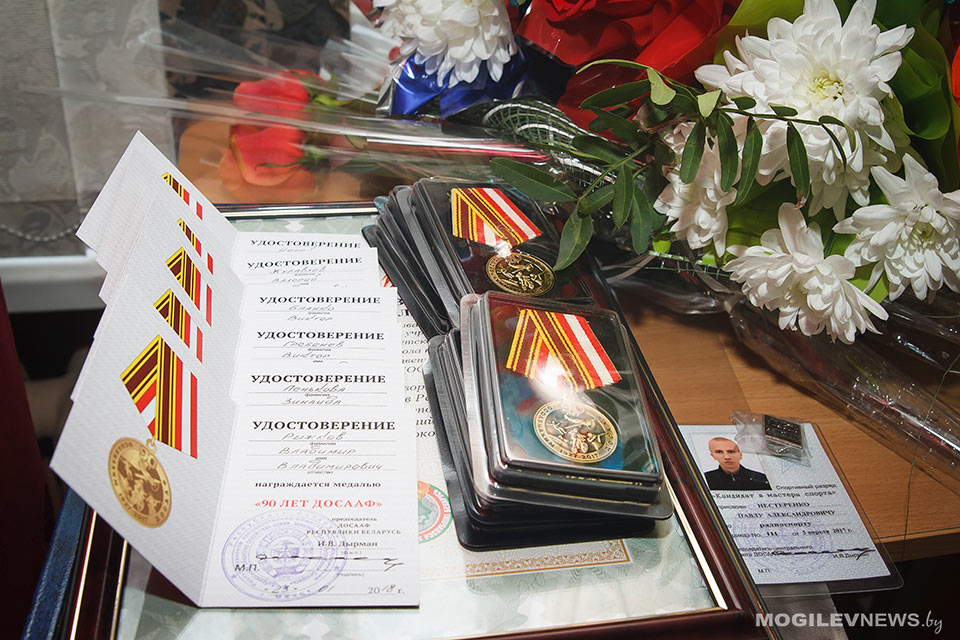 УДОСТОВЕРЕНИЕ
УДОСТОВЕРЕНИЕ
Журавлёв
фамилия
Валерий
УДОСТОВЕРЕНИЕ
Бланко
фамилия
Виктор
УДОСТОВЕРЕНИЕ
Гребенев
фамилия
Виктор
УДОСТОВЕРЕНИЕ
Пенькова
фамилия
Зинаида
УДОСТОВЕРЕНИЕ
Рыжков
фамилия
Владимир
имя
Владимирович
отчество
награждается медалью
«90 ЛЕТ ДОСААФ»
председатель
ДОСААФ
РЕСПУБЛИКИ БЕЛАРУСЬ
И.В. Дырман
М.П.
(подпись)
01 2018 г.
1927-2017
Спортивный разряд
«Кандидат в мастера спорта»
присвоен
НЕСТЕРЕНКО
ПАВЛУ АЛЕКСАНДРОВИЧУ
радиоспорту
2017 г.
М.П.
MOGILEVNEWS.by